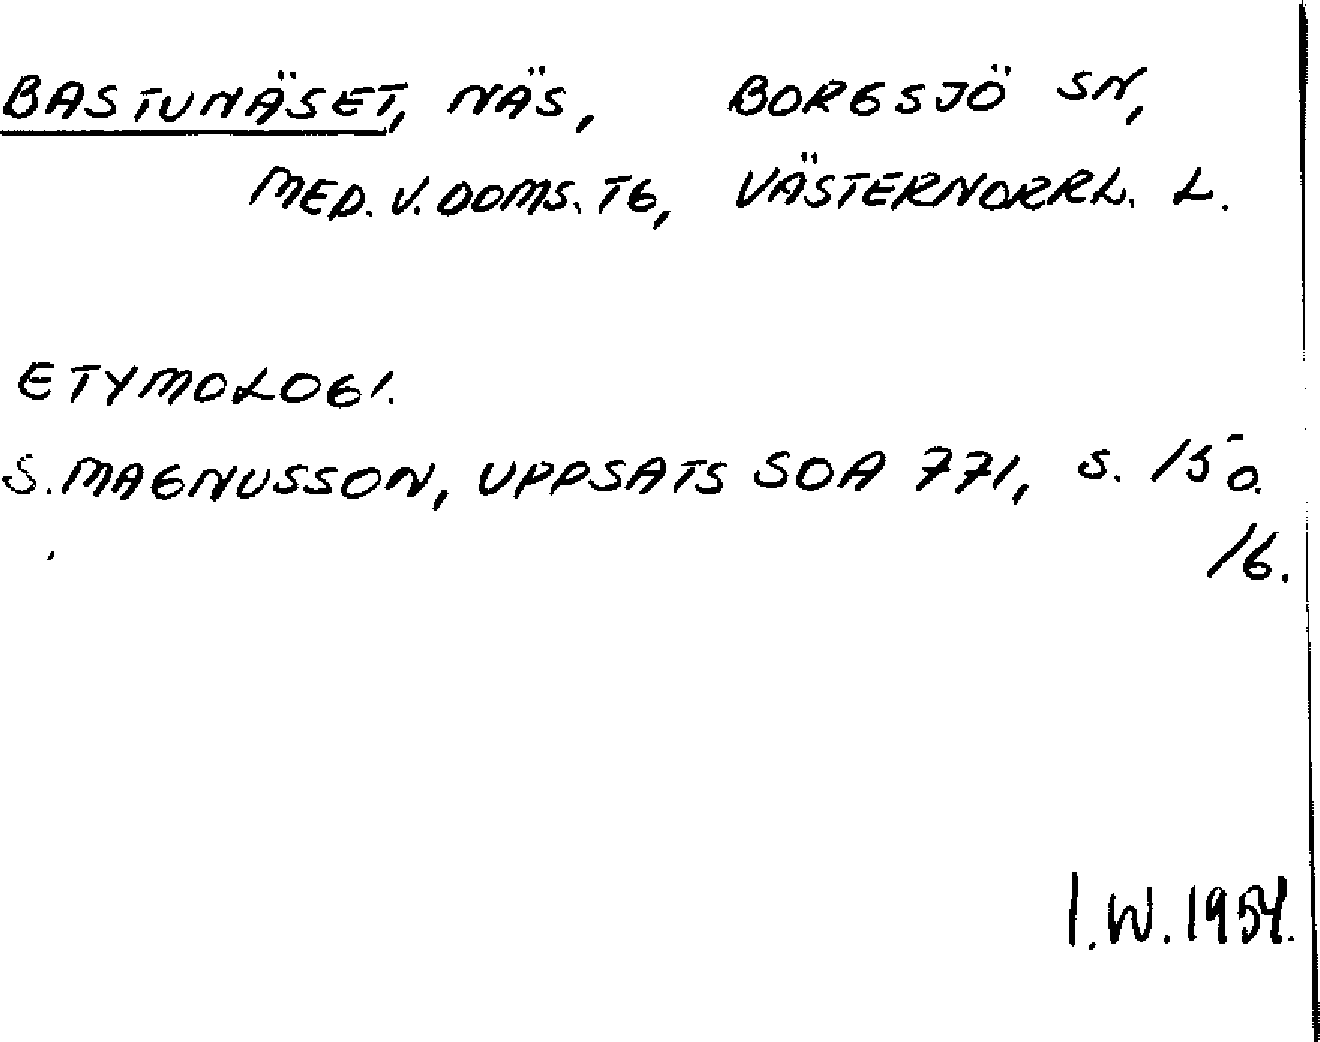 BASTUNÄSET, NÄS, BORGSJÖ SN,
MED. V. DOMS. TG, VÄSTERNORRL. L.
ETYMOLOGI.
S. MAGNUSSON, UPPSATS SOA 771, S. 15 O.
16.
I.W. 1954.